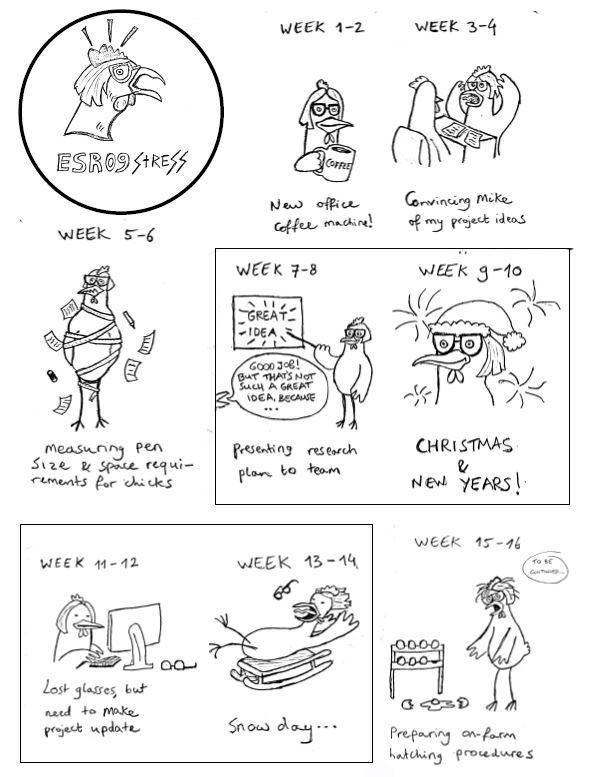 ESR09 STRESS
WEEK 1-2
COFFEE
New office
coffee machine!
WEEK 3-4
Convincing Mike
of my project ideas
WEEK 5-6
measuring pen
size & space requi-
rements for chicks
WEEK 7-8
GREAT
IDEA
GOOD JOB!
BUT THAT'S NOT
SUCH A GREAT
IDEA, BECAUSE
...
Presenting research
plan to team
WEEK 9-10
CHRISTMAS
&
NEW YEARS!
WEEK 11-12
Lost glasses, but
need to make
project update
WEEK 13-14
Snow day...
WEEK 15-16
TO BE
CONTINUED...
Preparing on-farm
hatching procedures